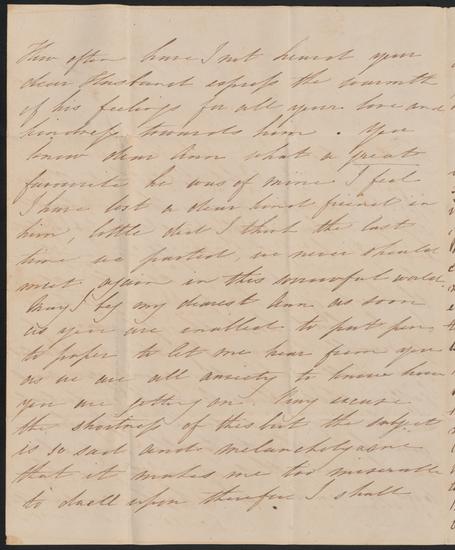 How often have I not heard your
dear Husband express the warmth
of his feelings for all your love and
kindness towards him. You
know dear Ann what a great
favourite he was of mine I feel
I have lost a dear kind friend in
him, little did I think the last
time we parted, we never should
meet again in this sorrowful world.
May I beg my dearest Ann as soon
as you are enabled to put pen
to paper to let me hear from you
as we are all anxiety to know how
you are getting on. Pray excuse
the shortness of this but the subject
is so sad and melancholy
that it makes me too miserable
to dwell upon therefore I shall